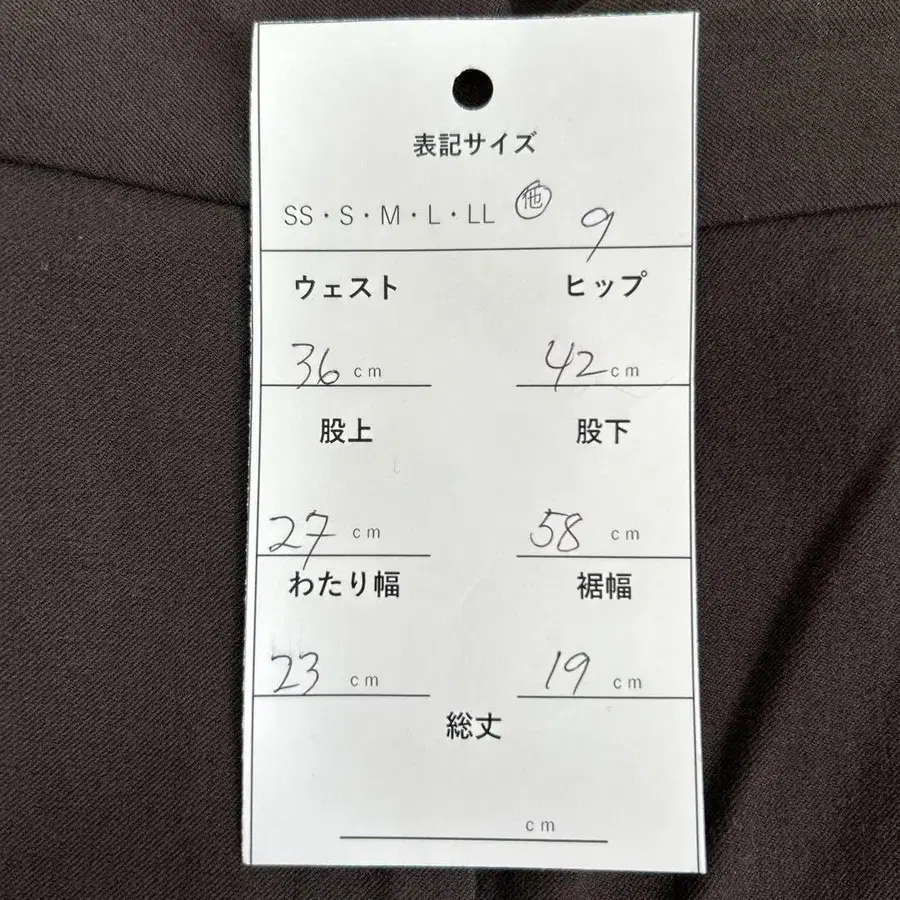 表記サイズ
SS・S・M・L・LL 他 9
ウェスト ヒップ
36 cm 42 cm
股上 股下
27 cm 58 cm
わたり幅 裾幅
23 cm 19 cm
総丈
cm